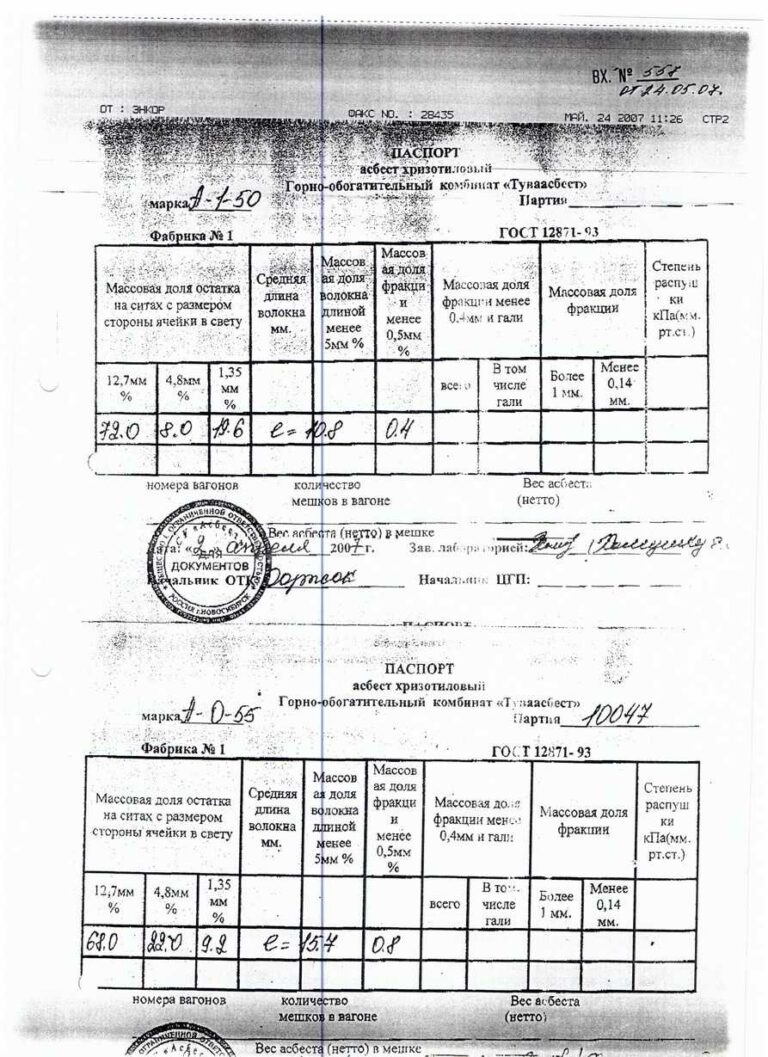 ВХ. № 557
от 24.05.07.
ОТ : ЭНКОР ФАКС NO. : 28435 МАЙ. 24 2007 11:26 СТР2
ПАСПОРТ
асбест хризотиловый
Горно-обогатительный комбинат «Туваасбест»
марка А-1-50 Партия
Фабрика № 1 ГОСТ 12871- 93
Массовая доля остатка на ситах с размером стороны ячейки в свету
Средняя длина волокна мм.
Массов ая доля волокна длиной менее 5мм %
Массов ая доля фракци и менее 0,5мм %
Массовая доля фракции менее 0.4мм и гали
Массовая доля фракции
Степень распуш ки кПа(мм. рт.ст.)
12,7мм % 4,8мм % 1,35 мм % всего В том числе гали Более 1 мм. Менее 0,14 мм.
72.0 8.0 19.6 e = 10.8 0.4
номера вагонов количество мешков в вагоне Вес асбеста (нетто)
Вес асбеста (нетто) в мешке
Дата: «2» апреля 2007 г. Зав. лабораторией:
Начальник ОТК Начальник ЦГП:
ДЛЯ ДОКУМЕНТОВ
РОССИЯ г.НОВОСИБИРСК
ПАСПОРТ
ПАСПОРТ
асбест хризотиловый
Горно-обогатительный комбинат «Туваасбест»
марка А-0-55 Партия 10047
Фабрика № 1 ГОСТ 12871- 93
Массовая доля остатка на ситах с размером стороны ячейки в свету
Средняя длина волокна мм.
Массов ая доля волокна длиной менее 5мм %
Массов ая доля фракци и менее 0,5мм %
Массовая доля фракции менее 0,4мм и гали
Массовая доля фракции
Степень распуш ки кПа(мм. рт.ст.)
12,7мм % 4,8мм % 1,35 мм % всего В том числе гали Более 1 мм. Менее 0,14 мм.
68.0 22.0 9.2 e = 15.7 0.8
номера вагонов количество мешков в вагоне Вес асбеста (нетто)
Вес асбеста (нетто) в мешке